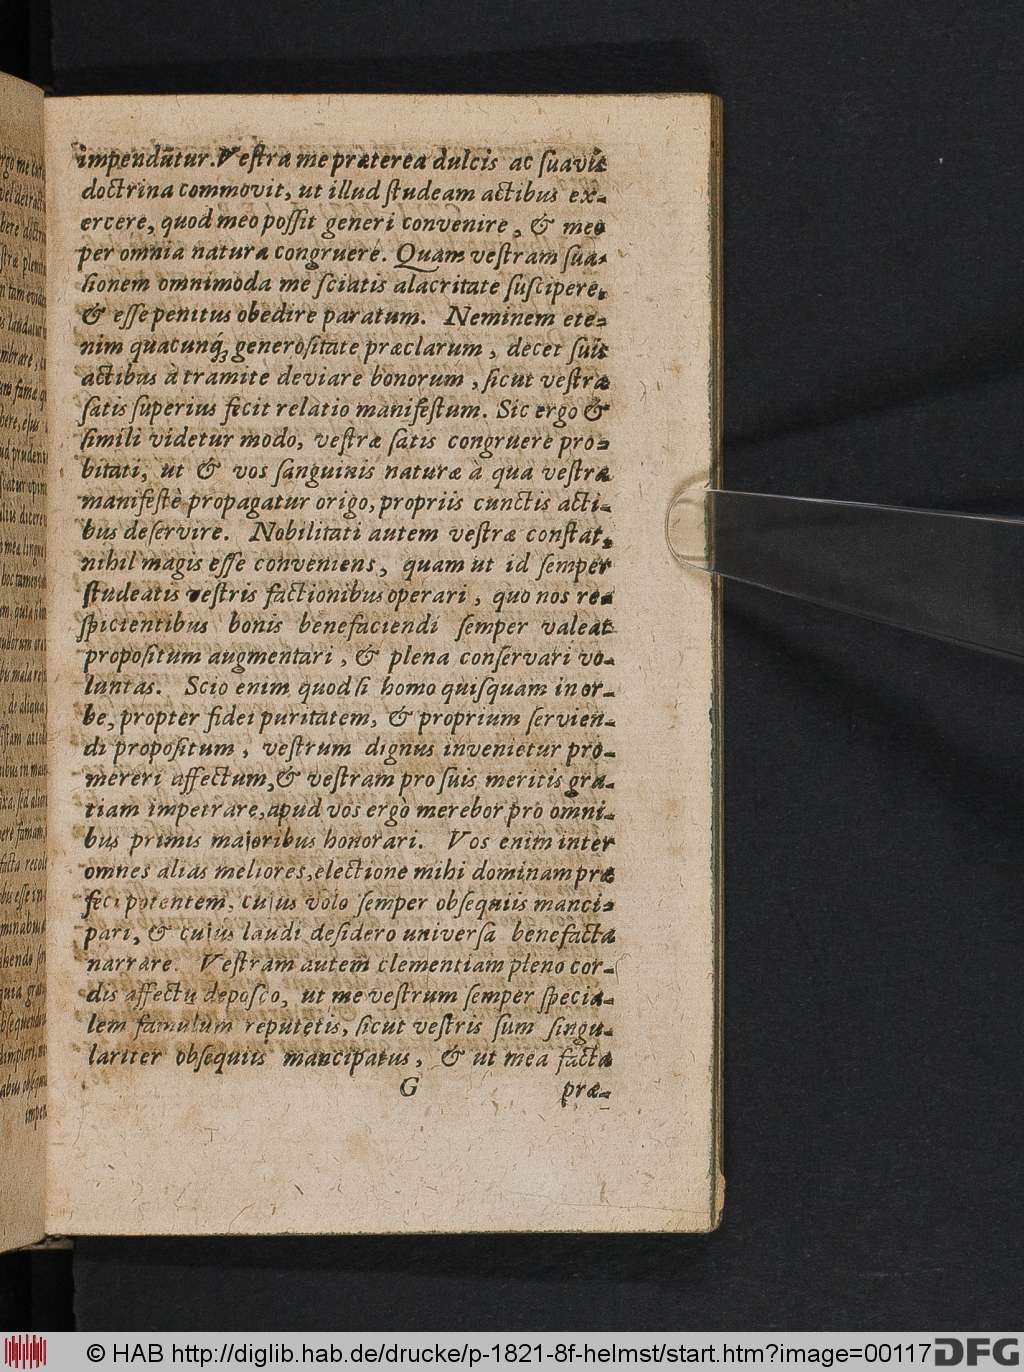 impenduntur. Vestra me præterea dulcis ac suavis
doctrina commovit, ut illud studeam actibus ex-
ercere, quod meo possit generi convenire, & meo
per omnia naturæ congruere. Quam vestram sua-
sionem omnimoda me sciatis alacritate suscipere,
& esse penitus obedire paratum. Neminem ete-
nim quacunq́; generositate præclarum, decet suis
actibus à tramite deviare bonorum, sicut vestra
satis superius fecit relatio manifestum. Sic ergo &
simili videtur modo, vestræ satis congruere pro-
bitati, ut & vos sanguinis naturæ à qua vestra
manifestè propagatur origo, propriis cunctis acti-
bus deservire. Nobilitati autem vestræ constat,
nihil magis esse conveniens, quam ut id semper
studeatis vestris factionibus operari, quo nos re-
spicientibus bonis benefaciendi semper valeat
propositum augmentari, & plena conservari vo-
luntas. Scio enim quod si homo quisquam in or-
be, propter fidei puritatem, & proprium servien-
di propositum, vestrum dignus invenietur pro-
mereri affectum, & vestram pro suis meritis gra-
tiam impetrare, apud vos ergò merebor pro omni-
bus primis majoribus honorari. Vos enim inter
omnes alias meliores, electione mihi dominam præ
feci potentem, cujus volo semper obsequiis manci-
pari, & cujus laudi desidero universa benefacta
narrare. Vestram autem clementiam pleno cor-
dis affectu deposco, ut me vestrum semper specia-
lem famulum reputetis, sicut vestris sum singu-
lariter obsequiis mancipatus, & ut mea facta
G præ-
© HAB http://diglib.hab.de/drucke/p-1821-8f-helmst/start.htm?image=00117 DFG